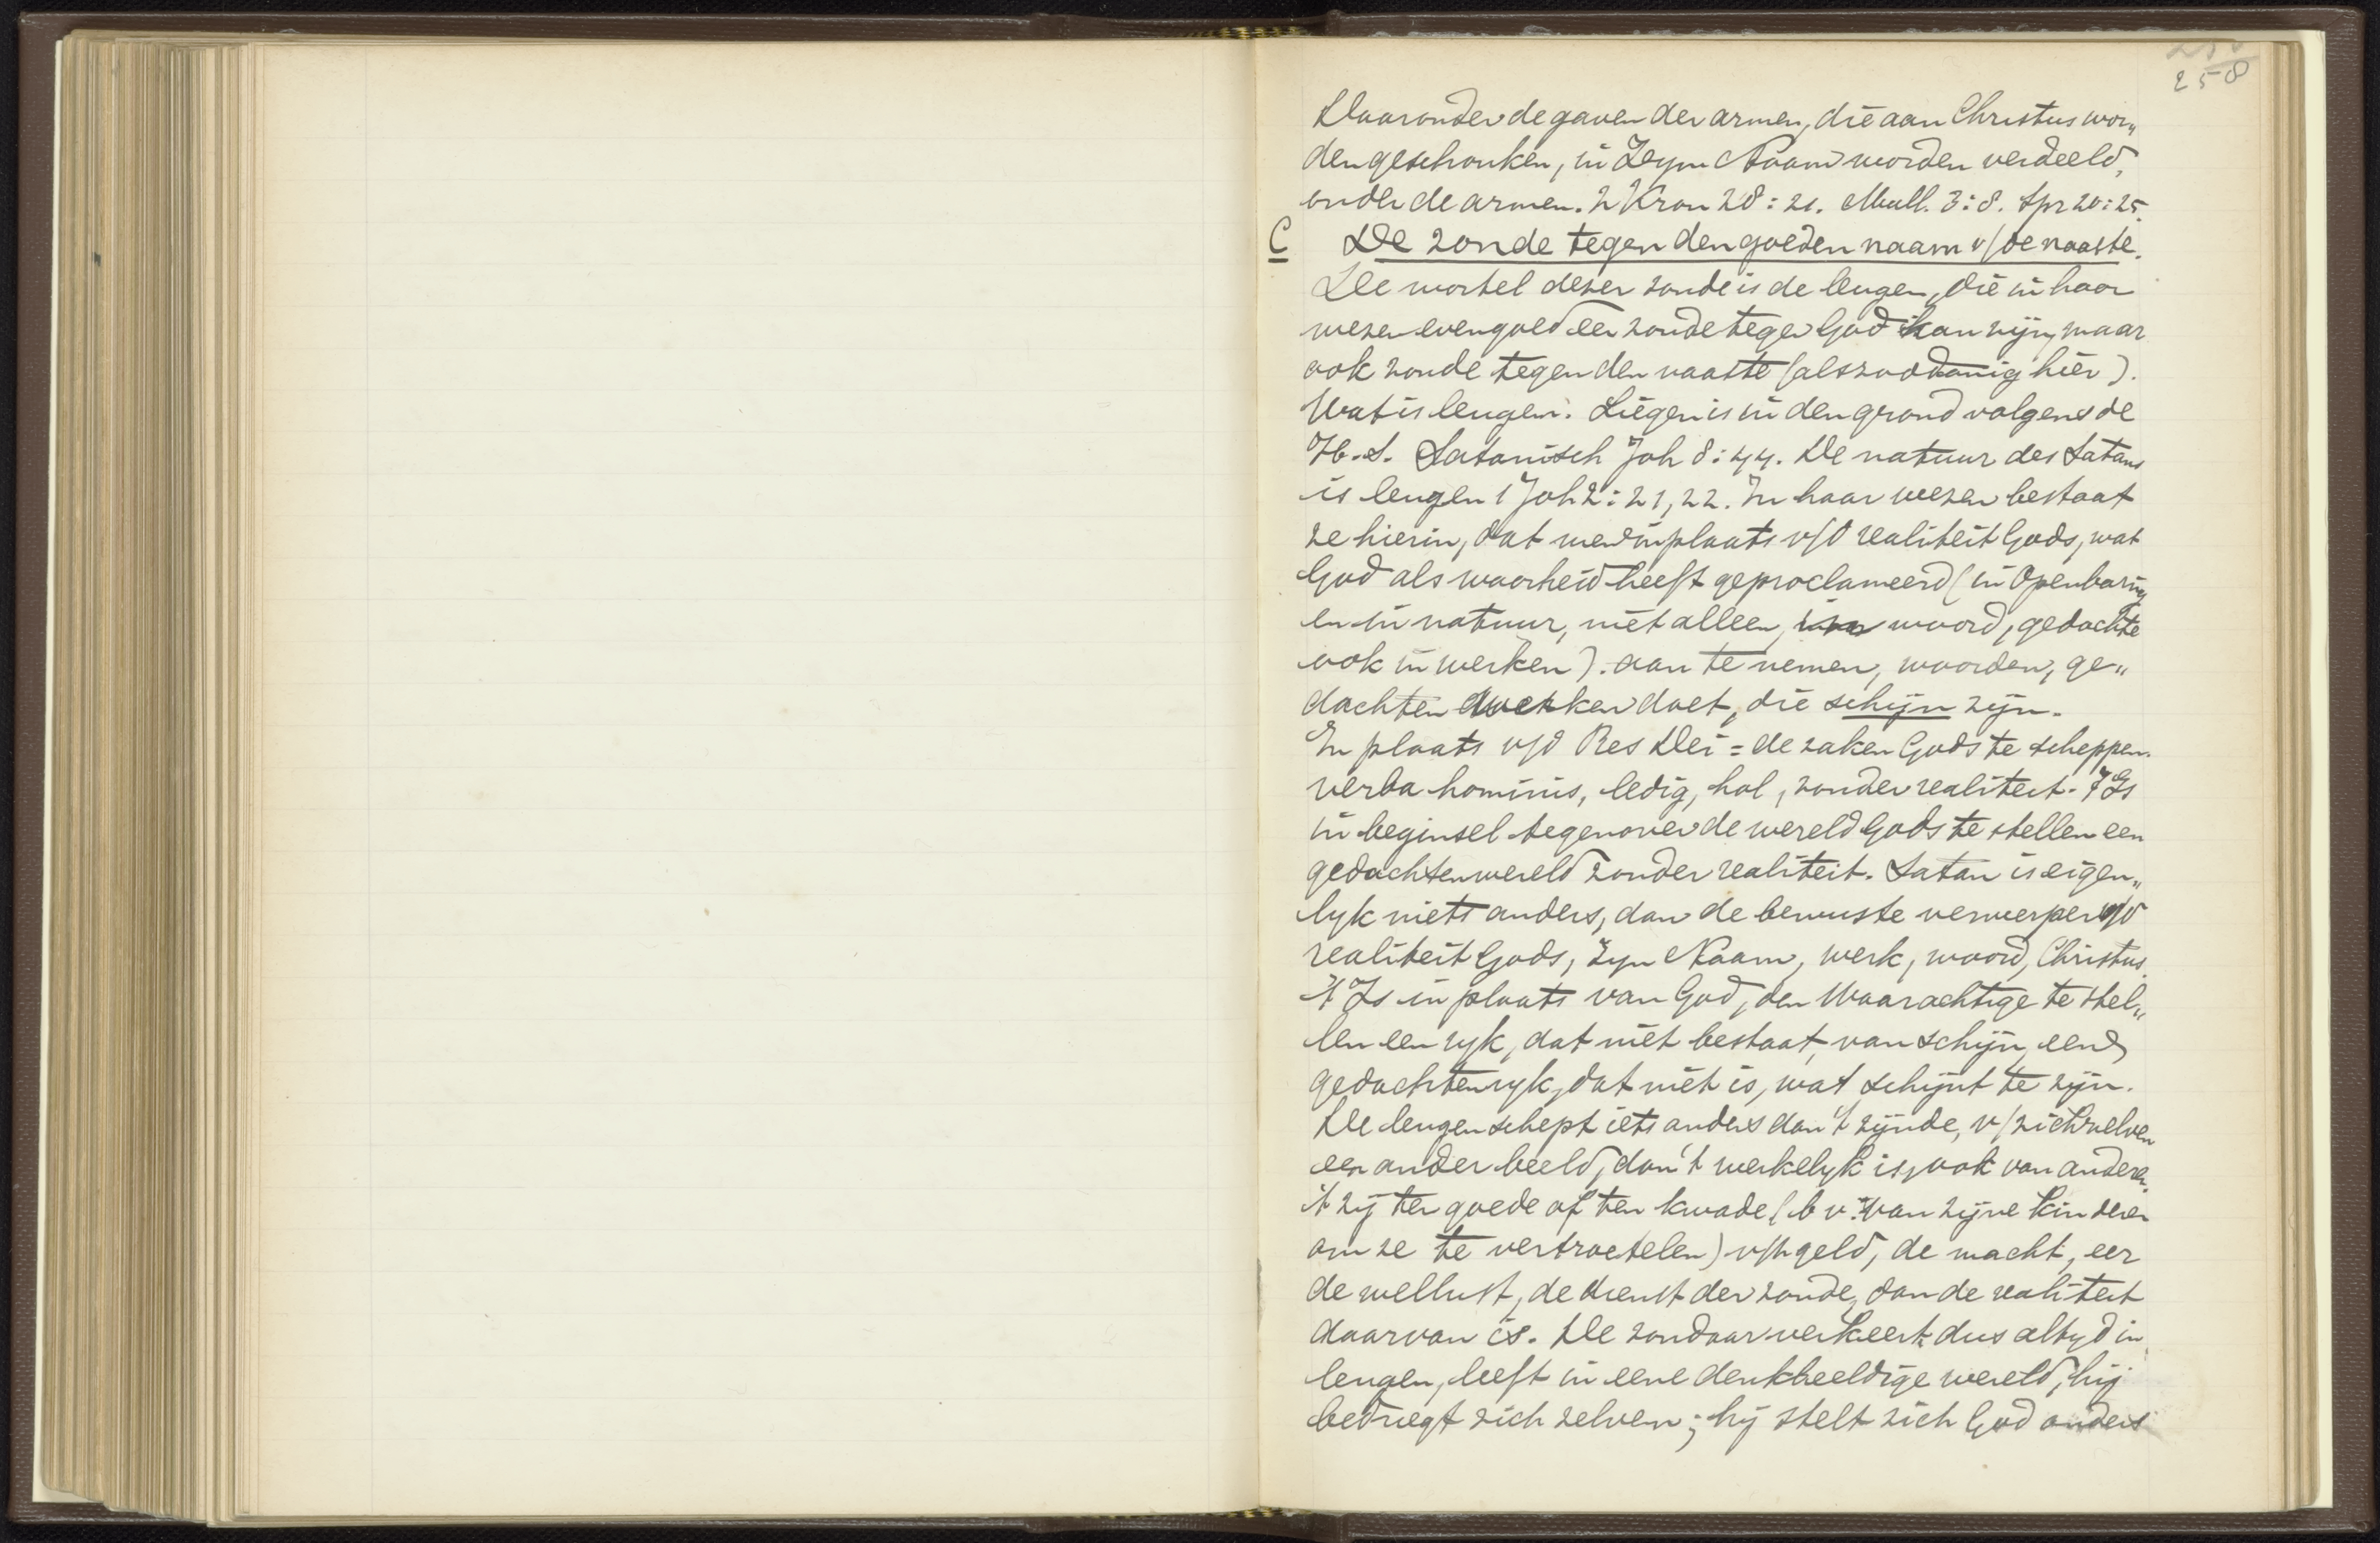 258
Daaronder de gaven der armen, die aan Christus wor„
den geschonken, in Zijn Naam worden verdeeld,
onder de armen. 2 Kron 28:21. Mal. 3:8. Spr 20:25.
C De zonde tegen den goeden naam v/de naaste.
De wortel dezer zonde is de leugen, die in haar
wezen evengoed een zonde tegen God kan zijn, maar
ook zonde tegen den naaste (als zoodanig hier).
Wat is leugen. Liegen is in den grond volgens de
H.S. Satanisch Joh 8:44. De natuur des Satans
is leugen 1 Joh 2:21,22. In haar wezen bestaat
ze hierin, dat men in plaats v/d realiteit Gods, wat
God als waarheid heeft geproclameerd (in Openbaring
en in natuur, niet alleen in woord, gedachte
ook in werken). aan te nemen, woorden, ge„
dachten werken doet, die schijn zijn.
In plaats v/d Res Dei = de zaken Gods te scheppen
verba hominis, ledig, hol, zonder realiteit. 't Is
in beginsel tegenover de wereld Gods te stellen een
gedachtenwereld zonder realiteit. Satan is eigen„
lyk niets anders, dan de bewuste verwerper v/d
realiteit Gods, Zyn Naam, werk, woord, Christus.
't Is in plaats van God, den Waarachtige te stel„
len een ryk, dat niet bestaat, van schijn, een
gedachtenryk, dat niet is, wat schijnt te zijn.
De leugen schept iets anders dan 't zijnde, v/zichzelven
een ander beeld, dan 't werkelyk is, ook van anderen.
't zij ten goede of ten kwade (b v. van zijne kinderen
om ze te vertroetelen) v/h geld, de macht, eer
de wellust, de dienst der zonde, dan de realiteit
daarvan is. De zondaar verkeert dus altyd in
leugen, leeft in eene denkbeeldige wereld, hij
bedriegt zich zelven; hij stelt zich God anders